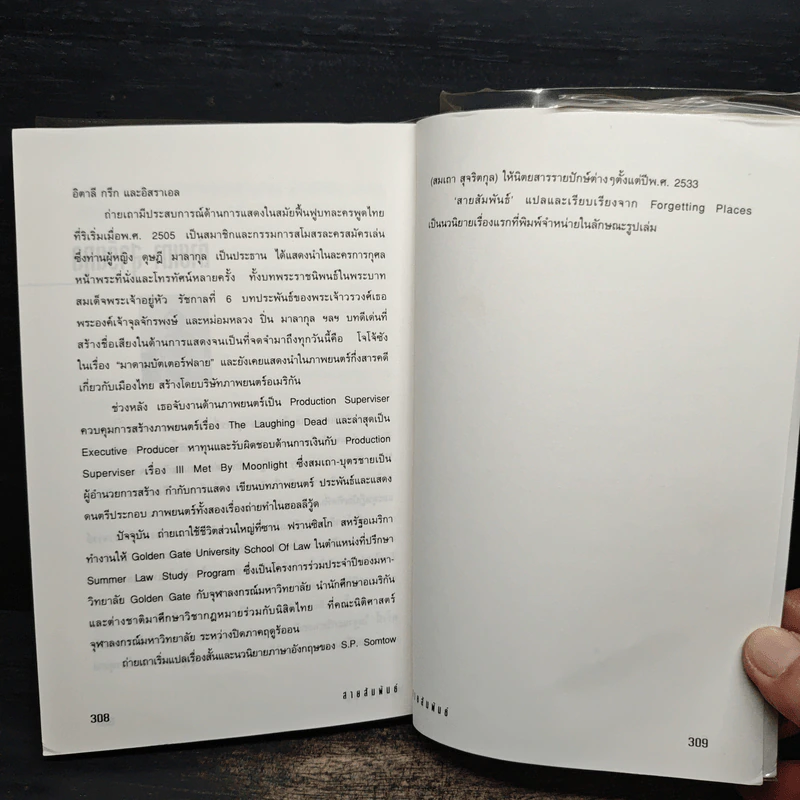 อิตาลี กรีก และอิสราเอล
ถ่ายเถามีประสบการณ์ด้านการแสดงในสมัยฟื้นฟูบทละครพูดไทย
ที่ริเริ่มเมื่อพ.ศ. 2505 เป็นสมาชิกและกรรมการสโมสรละครสมัครเล่น
ซึ่งท่านผู้หญิง ดุษฎี มาลากุล เป็นประธาน ได้แสดงนำในละครการกุศล
หน้าพระที่นั่งและโทรทัศน์หลายครั้ง ทั้งบทพระราชนิพนธ์ในพระบาท
สมเด็จพระเจ้าอยู่หัว รัชกาลที่ 6 บทประพันธ์ของพระเจ้าวรวงศ์เธอ
พระองค์เจ้าจุลจักรพงษ์ และหม่อมหลวง ปิ่น มาลากุล ฯลฯ บทดีเด่นที่
สร้างชื่อเสียงในด้านการแสดงจนเป็นที่จดจำมาถึงทุกวันนี้คือ โจโจ้ซัง
ในเรื่อง "มาดามบัตเตอร์ฟลาย" และยังเคยแสดงนำในภาพยนตร์กึ่งสารคดี
เกี่ยวกับเมืองไทย สร้างโดยบริษัทภาพยนตร์อเมริกัน
ช่วงหลัง เธอจับงานด้านภาพยนตร์เป็น Production Superviser
ควบคุมการสร้างภาพยนตร์เรื่อง The Laughing Dead และล่าสุดเป็น
Executive Producer หาทุนและรับผิดชอบด้านการเงินกับ Production
Superviser เรื่อง Ill Met By Moonlight ซึ่งสมเถา-บุตรชายเป็น
ผู้อำนวยการสร้าง กำกับการแสดง เขียนบทภาพยนตร์ ประพันธ์และแสดง
ดนตรีประกอบ ภาพยนตร์ทั้งสองเรื่องถ่ายทำในฮอลลีวู้ด
ปัจจุบัน ถ่ายเถาใช้ชีวิตส่วนใหญ่ที่ซาน ฟรานซิสโก สหรัฐอเมริกา
ทำงานให้ Golden Gate University School Of Law ในตำแหน่งที่ปรึกษา
Summer Law Study Program ซึ่งเป็นโครงการร่วมประจำปีของมหา-
วิทยาลัย Golden Gate กับจุฬาลงกรณ์มหาวิทยาลัย นำนักศึกษาอเมริกัน
และต่างชาติมาศึกษาวิชากฎหมายร่วมกับนิสิตไทย ที่คณะนิติศาสตร์
จุฬาลงกรณ์มหาวิทยาลัย ระหว่างปิดภาคฤดูร้อน
ถ่ายเถาเริ่มแปลเรื่องสั้นและนวนิยายภาษาอังกฤษของ S.P. Somtow
สายสัมพันธ์
308
(สมเถา สุจริตกุล) ให้นิตยสารรายปักษ์ต่างๆตั้งแต่ปีพ.ศ. 2533
'สายสัมพันธ์' แปลและเรียบเรียงจาก Forgetting Places
เป็นนวนิยายเรื่องแรกที่พิมพ์จำหน่ายในลักษณะรูปเล่ม
309